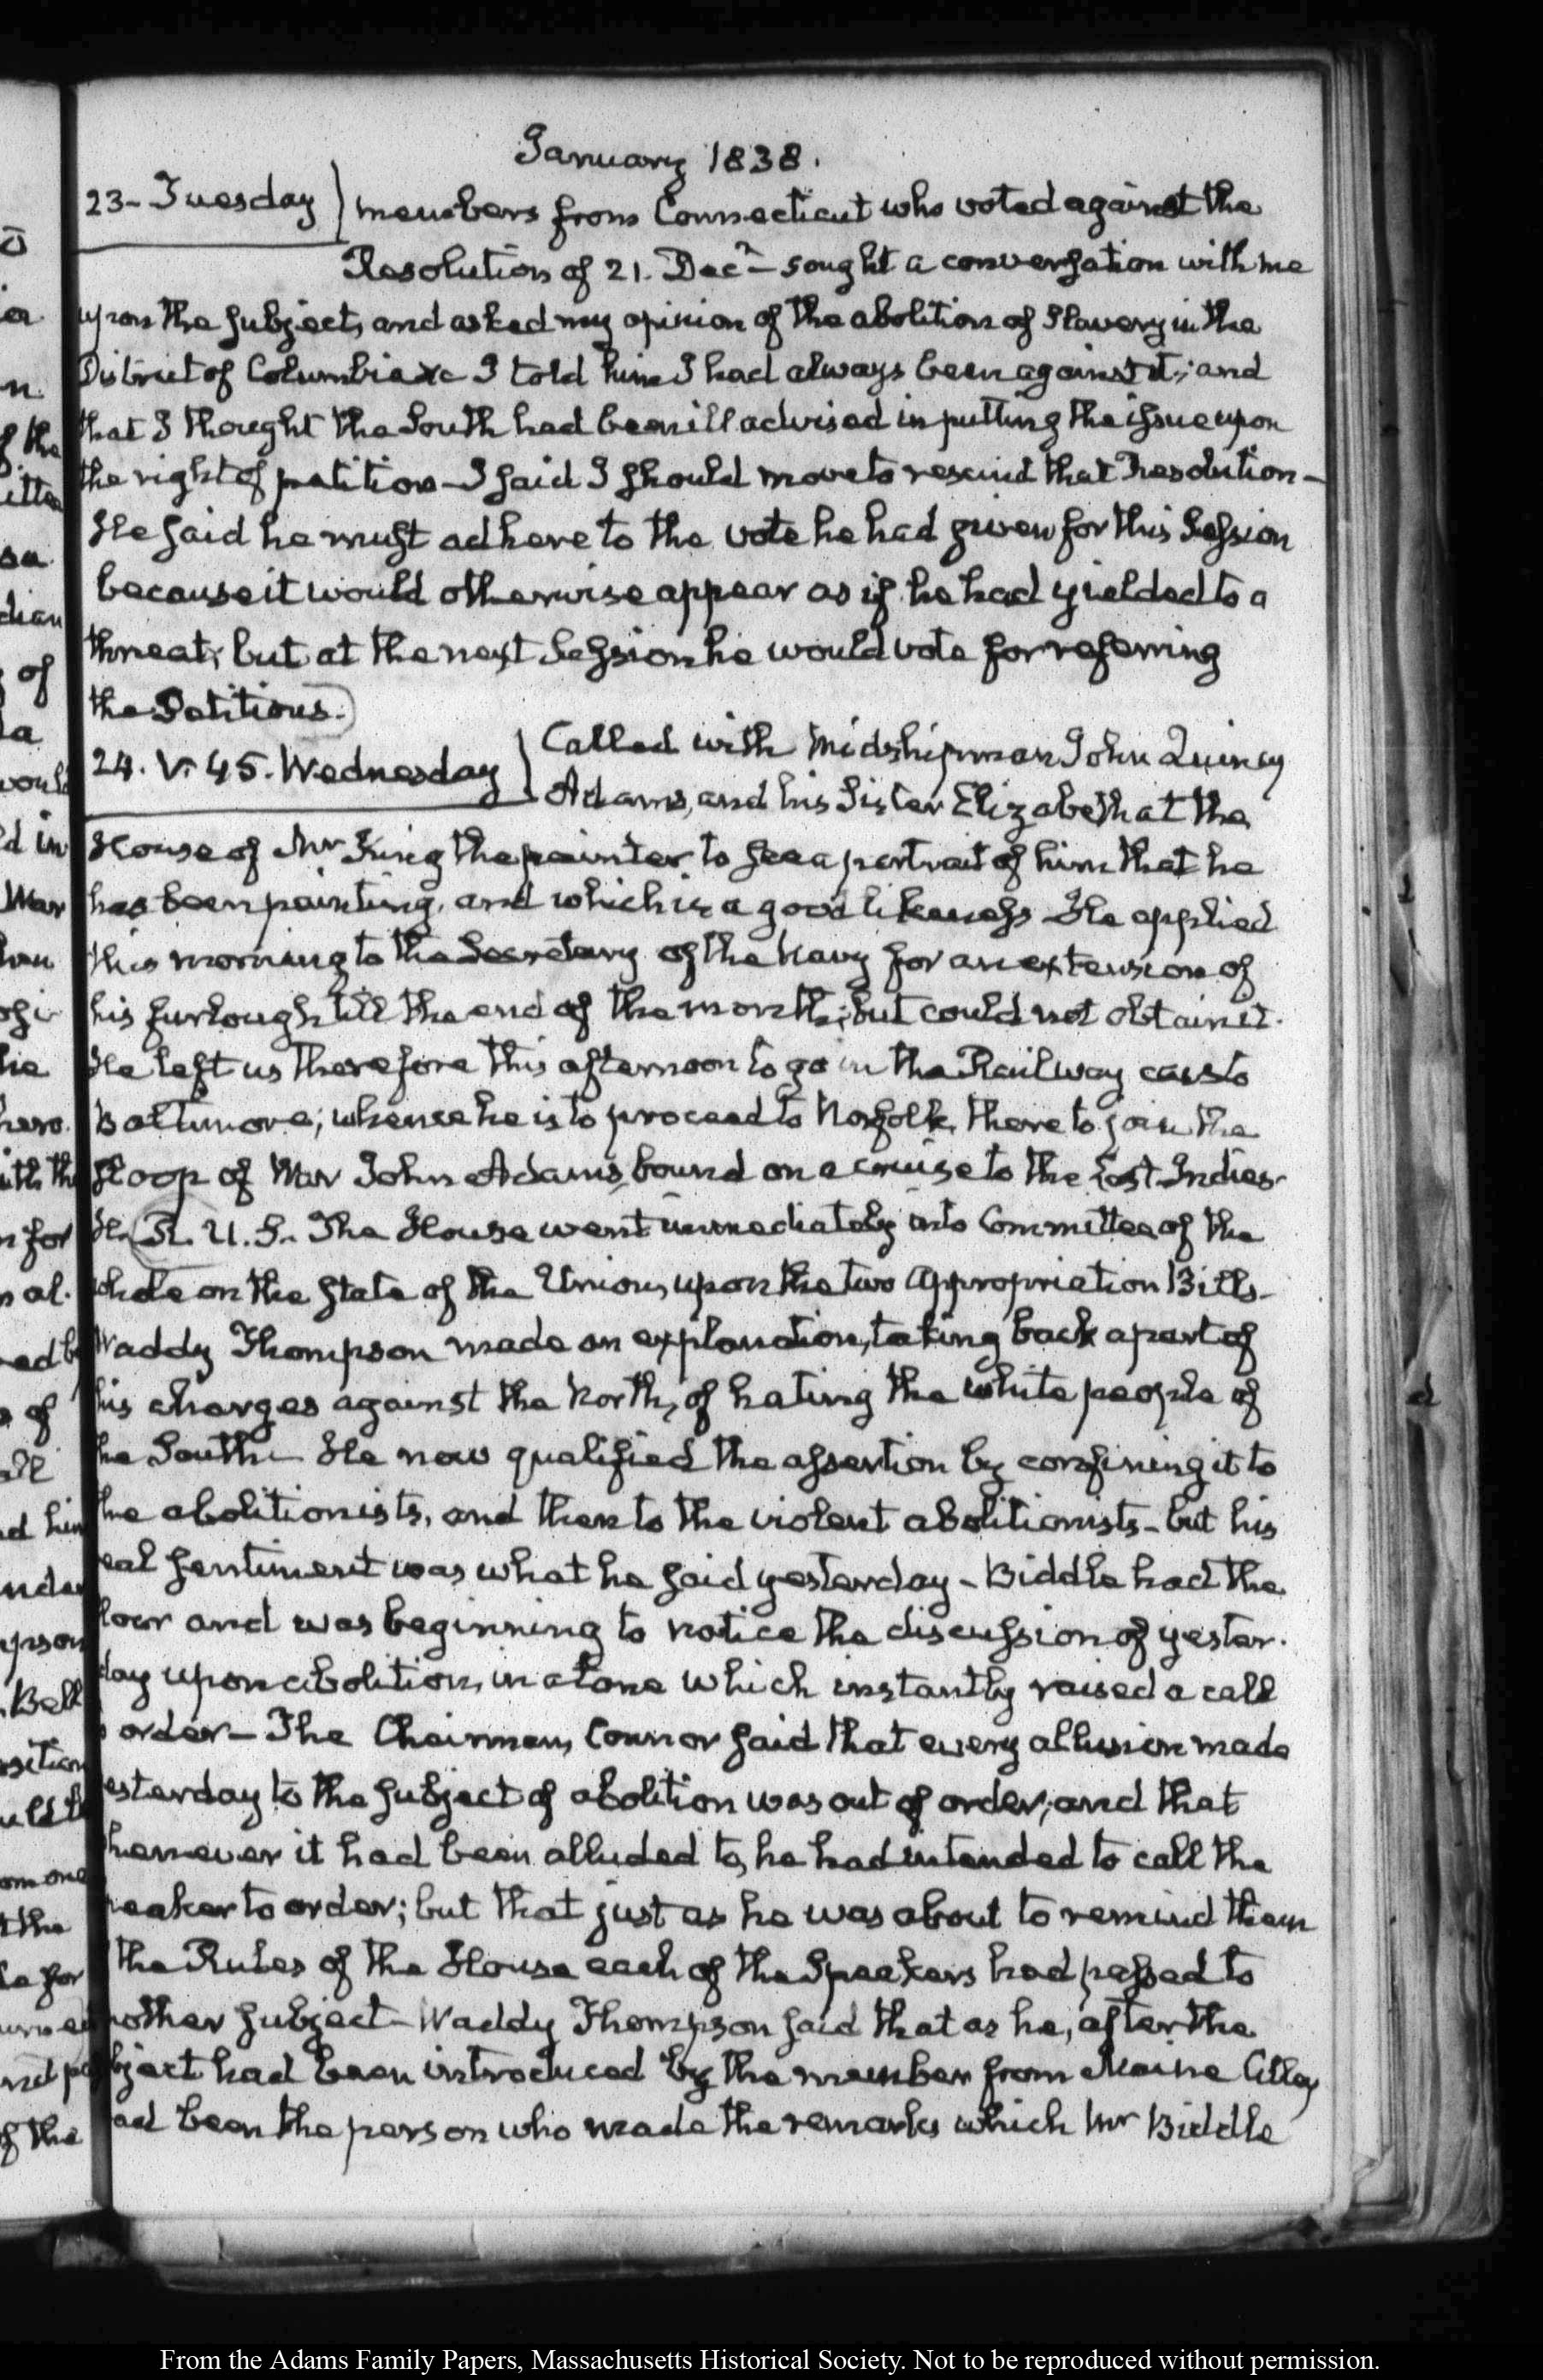 January 1838.
23- Tuesday) members from Connecticut who voted against the
Resolution of 21. Decr- sought a conversation with me
upon the subject, and asked my opinion of the abolition of Slavery in the
District of Columbia &c I told him I had always been against it; and
that I thought the South had been ill advised in putting the issue upon
the right of petition- I said I should move to rescind that Resolution-
He said he must adhere to the vote he had given for this Session
because it would otherwise appear as if he had yielded to a
threat; but at the next Session he would vote for referring
the Petitions.
24. V. 45. Wednesday} Called with Midshipman John Quincy
Adams, and his Sister Elizabeth at the
House of Mr King the painter to see a portrait of him that he
has been painting, and which is a good likeness- He applied
this morning to the Secretary of the Navy for an extension of
his furlough till the end of the month; but could not obtain it.
He left us therefore this afternoon to go in the Railway cars to
Baltimore; whence he is to proceed to Norfolk, there to join the
Sloop of War John Adams, bound on a cruise to the East-Indies-
H. R. U. S. The House went immediately into Committee of the
whole on the state of the Union, upon the two Appropriation Bills-
Waddy Thompson made an explanation, taking back a part of
his charges against the North, of hating the white people of
the South- He now qualified the assertion by confining it to
the abolitionists, and then to the violent abolitionists- but his
real sentiment was what he said yesterday- Biddle had the
floor and was beginning to notice the discussion of yester-
day upon abolition, in a tone which instantly raised a call
order- The Chairman, Connor said that every allusion made
yesterday to the subject of abolition was out of order; and that
whenever it had been alluded to, he had intended to call the
Speaker to order; but that just as he was about to remind them
the Rules of the House each of the Speakers had passed to
another subject- Waddy Thompson said that as he, after the
subject had been introduced by the member from Maine
had been the person who made the remarks which Mr Biddle
From the Adams Family Papers, Massachusetts Historical Society. Not to be reproduced without permission.